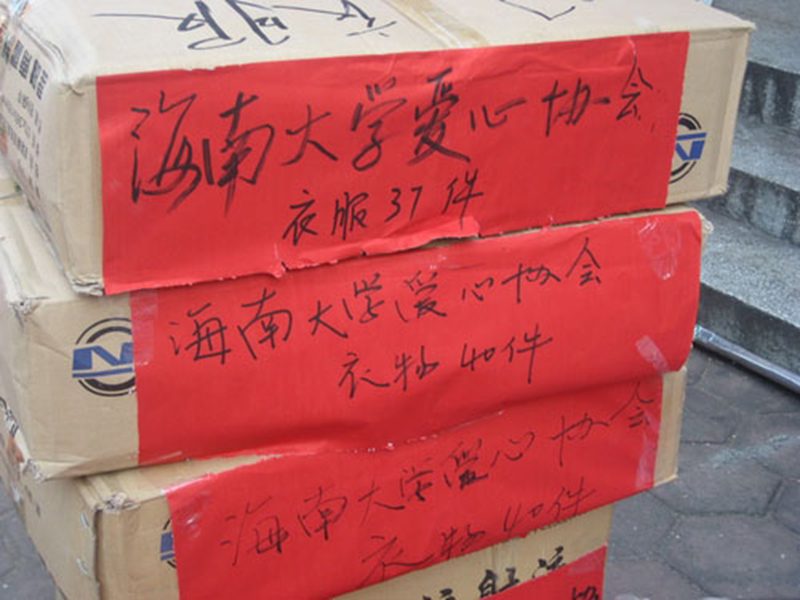 衣服
海南大学爱心协会
衣服37件
海南大学爱心协会
衣物40件
海南大学爱心协会
衣物40件